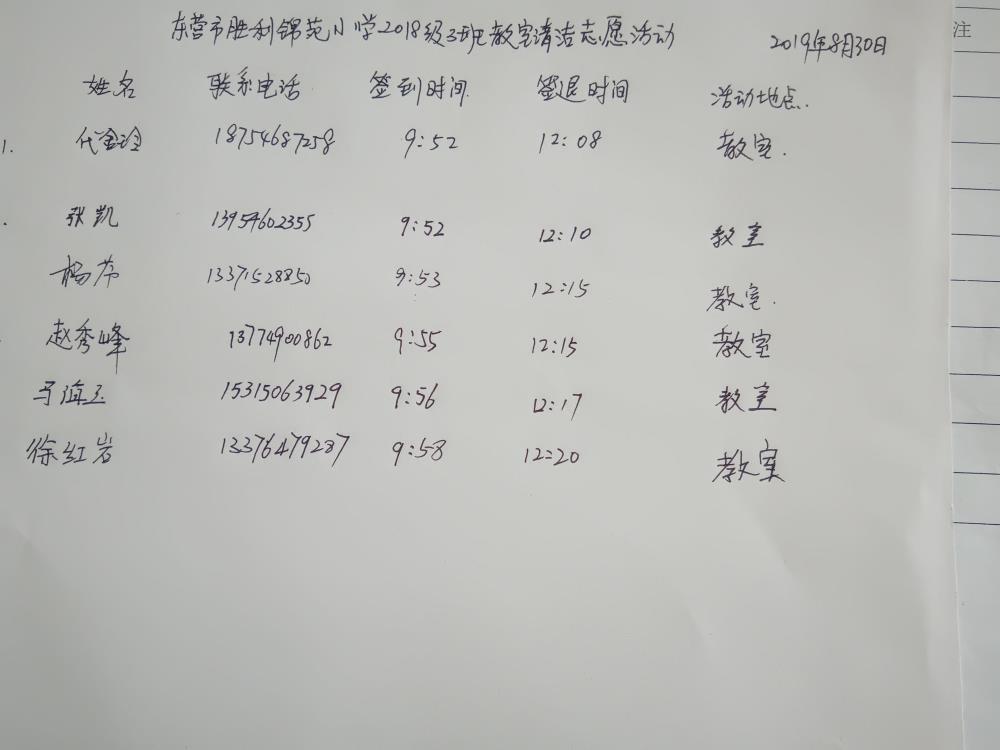 东营市胜利锦苑小学2018级3班教室清洁志愿活动 2019年8月30日
注
姓名 联系电话 签到时间 签退时间 活动地点.
1. 代金玲 18754687258 9:52 12:08 教室.
. 张凯 13954602355 9:52 12:10 教室
杨芹 13371528850 9:53 12:15 教室.
赵秀峰 13774900862 9:55 12:15 教室
马海玉 15315063929 9:56 12:17 教室
徐红岩 13376479287 9:58 12:20 教室